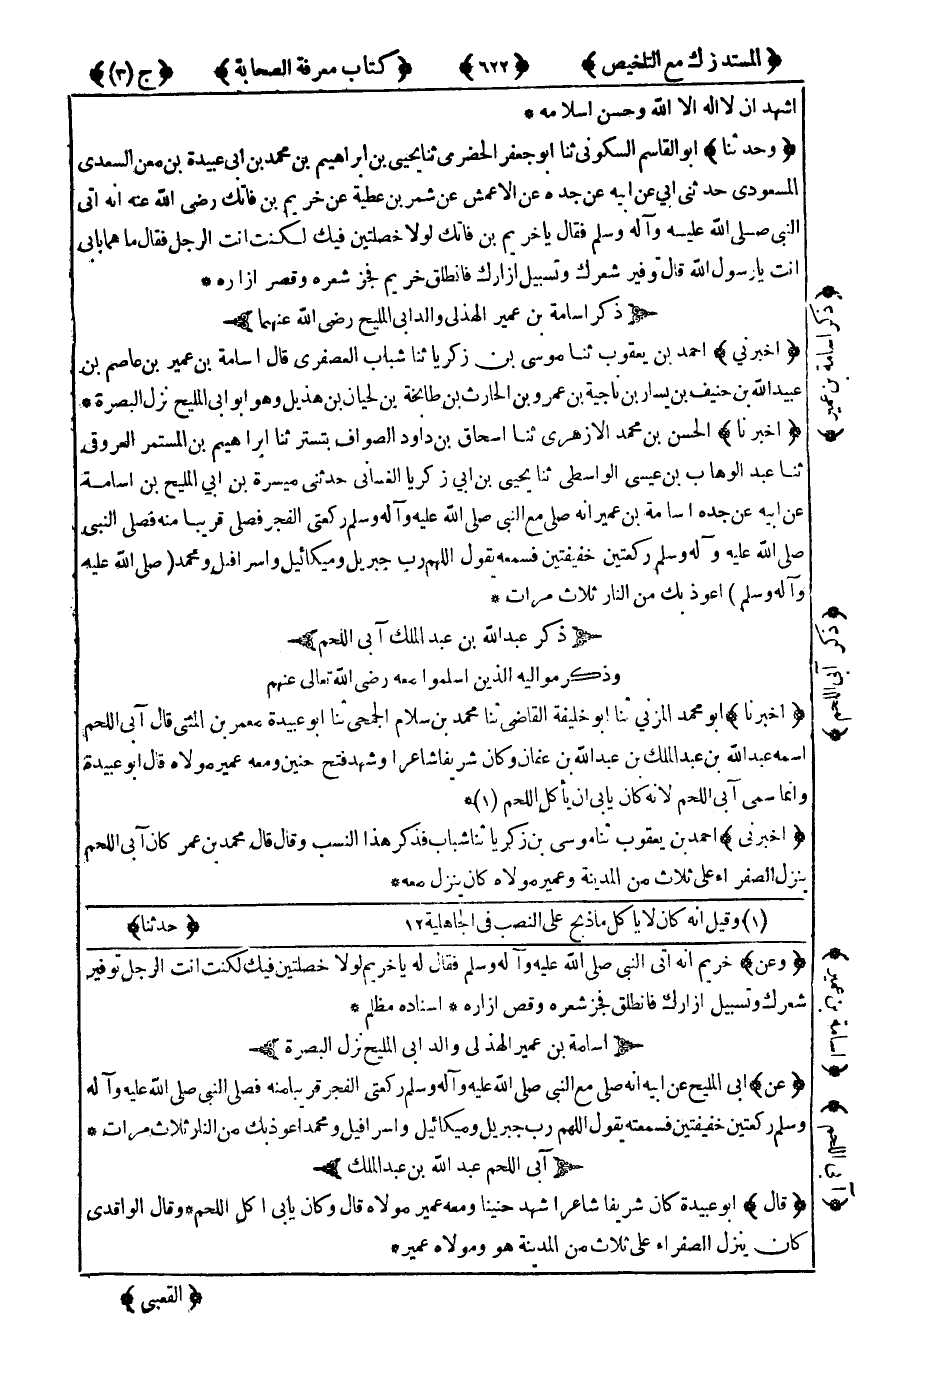 ﴿ المستدرك مع التلخيص ﴾ ﴿ ٦٢٢ ﴾ ﴿ كتاب معرفة الصحابة ﴾ ﴿ ج (٣) ﴾
اشهد ان لا اله الا الله وحسن اسلامه *
﴿ وحدثنا ﴾ ابو القاسم السكونى ثنا ابو جعفر الحضرمى ثنا يحيى بن ابراهيم بن محمد بن ابى عبيدة بن معن السعدى
المسعودى حدثنى ابي عن ابيه عن جده عن الاعمش عن شمر بن عطية عن خريم بن فاتك رضى الله عنه انه اتى
النبى صلى الله عليه وآله وسلم فقال يا خريم بن فاتك لولا خصلتين فيك لكنت انت الرجل فقال ما هما بابى
انت يا رسول الله قال توفير شعرك وتسبيل ازارك فانطلق خريم فجز شعره وقصر ازاره *
﴿ ذكر اسامة بن عمير الهذلى والد ابى المليح رضى الله عنهما ﴾
﴿ اخبرني ﴾ احمد بن يعقوب ثنا موسى بن زكريا ثنا شباب العصفرى قال اسامة بن عمير بن عاصم بن
عبيد الله بن حنيف بن يسار بن ناجية بن عمرو بن الحارث بن طابخة بن لحيان بن هذيل وهو ابو ابى المليح نزل البصرة *
﴿ اخبرنا ﴾ الحسن بن محمد الازهرى ثنا اسحاق بن داود الصواف بتستر ثنا ابراهيم بن المستمر العروقى
ثنا عبد الوهاب بن عيسى الواسطى ثنا يحيى بن ابي زكريا الغسانى حدثنى ميسرة بن ابي المليح بن اسامة
عن ابيه عن جده اسامة بن عمير انه صلى مع النبى صلى الله عليه وآله وسلم ركعتى الفجر فصلى قريبا منه فصلى النبى
صلى الله عليه وآله وسلم ركعتين خفيفتين فسمعه يقول اللهم رب جبريل وميكائيل واسرافيل ومحمد ( صلى الله عليه
وآله وسلم ) اعوذ بك من النار ثلاث مرات *
﴿ ذكر عبدالله بن عبدالملك آبى اللحم ﴾
وذكر مواليه الذين اسلموا معه رضى الله تعالى عنهم
﴿ اخبرنا ﴾ ابو محمد المزني ثنا ابو خليفة القاضى ثنا محمد بن سلام الجمحى ثنا ابو عبيدة معمر بن المثنى قال آبى اللحم
اسمه عبدالله بن عبدالملك بن عبدالله بن عفان وكان شريفا شاعرا وشهد فتح حنين ومعه عمير مولاه قال ابو عبيدة
وانما سمى آبى اللحم لانه كان يابى ان يأكل اللحم (١)*
﴿ اخبرنى ﴾ احمد بن يعقوب ثنا موسى بن زكريا ثنا شباب فذكر هذا النسب وقال قال محمد بن عمر كان آبى اللحم
ينزل الصفراء على ثلاث من المدينة وعمير مولاه كان ينزل معه*
(١) وقيل انه كان لا ياكل ما ذبح على النصب فى الجاهلية ١٢ ﴿ حدثنا ﴾
﴿ وعن ﴾ خريم انه اتى النبى صلى الله عليه وآله وسلم فقال له يا خريم لولا خصلتين فيك لكنت انت الرجل توفير
شعرك وتسبيل ازارك فانطلق فجز شعره وقص ازاره * اسناده مظلم *
﴿ اسامة بن عمير الهذلى والد ابى المليح نزل البصرة ﴾
﴿ عن ﴾ ابى المليح عن ابيه انه صلى مع النبى صلى الله عليه وآله وسلم ركعتى الفجر قريبا منه فصلى النبى صلى الله عليه وآله
وسلم ركعتين خفيفتين فسمعته يقول اللهم رب جبريل وميكائيل واسرافيل ومحمد اعوذ بك من النار ثلاث مرات *
﴿ آبى اللحم عبد الله بن عبدالملك ﴾
﴿ قال ﴾ ابو عبيدة كان شريفا شاعرا شهد حنينا ومعه عمير مولاه قال وكان يابى اكل اللحم*وقال الواقدى
كان ينزل الصفراء على ثلاث من المدينة هو ومولاه عمير*
﴿ القعبى ﴾
﴿ ذكر اسامة بن عمير ﴾
﴿ ذكر آبى اللحم ﴾
﴿ اسامة بن عمير ﴾
﴿ آبى اللحم ﴾